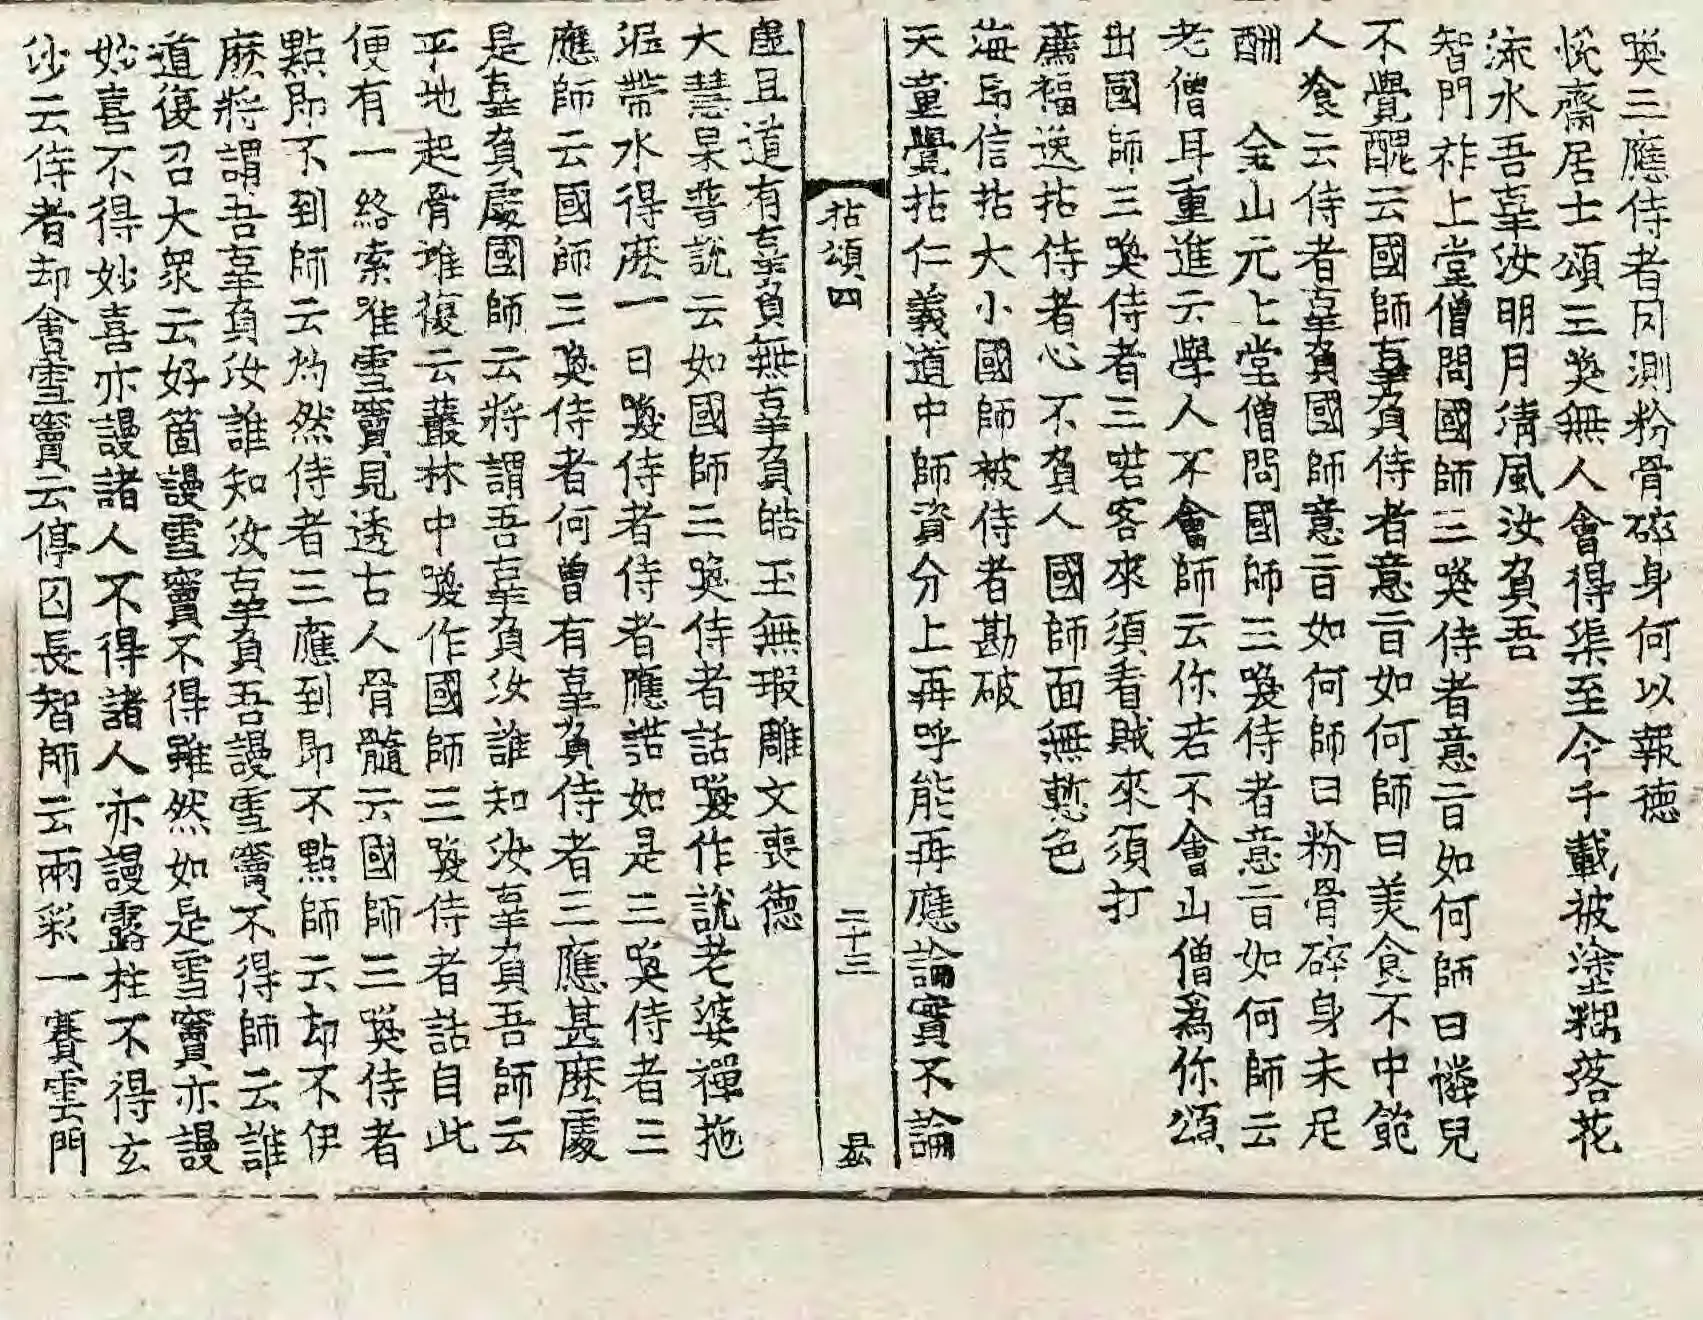 喚三應侍者同測粉骨碎身何以報德
悅齋居士頌三喚無人會得渠至今千載被塗糊落花
流水吾辜汝明月淸風汝負吾
智門祚上堂僧問國師三喚侍者意旨如何師曰憐兒
不覺醜云國師辜負侍者意旨如何師曰美食不中飽
人飡云侍者辜負國師意旨如何師曰粉骨碎身未足
酬　金山元上堂僧問國師三喚侍者意旨如何師云
老僧耳重進云學人不會師云你若不會山僧爲你頌
出國師三喚侍者三喏客來須看賊來須打
薦福逸拈侍者心不負人國師面無慙色
海印信拈大小國師被侍者勘破
天童覺拈仁義道中師資分上再呼能再應論實不論
拈頌四　二十三
虛且道有辜負無辜負皓玉無瑕雕文喪德
大慧杲普說云如國師三喚侍者話喚作說老婆禪拖
泥帶水得麽一日喚侍者侍者應諾如是三喚侍者三
應師云國師三喚侍者何曾有辜負侍者三應甚麽處
是辜負處國師云將謂吾辜負汝誰知汝辜負吾師云
平地起骨堆復云叢林中喚作國師三喚侍者話自此
便有一絡索唯雪竇見透古人骨髓云國師三喚侍者
點即不到師云灼然侍者三應到即不點師云却不伊
麽將謂吾辜負汝誰知汝辜負吾謾雪竇不得師云誰
道復召大衆云好箇謾雪竇不得雖然如是雪竇亦謾
妙喜不得妙喜亦謾諸人不得諸人亦謾露柱不得玄
沙云侍者却會雪竇云停囚長智師云兩彩一賽雲門